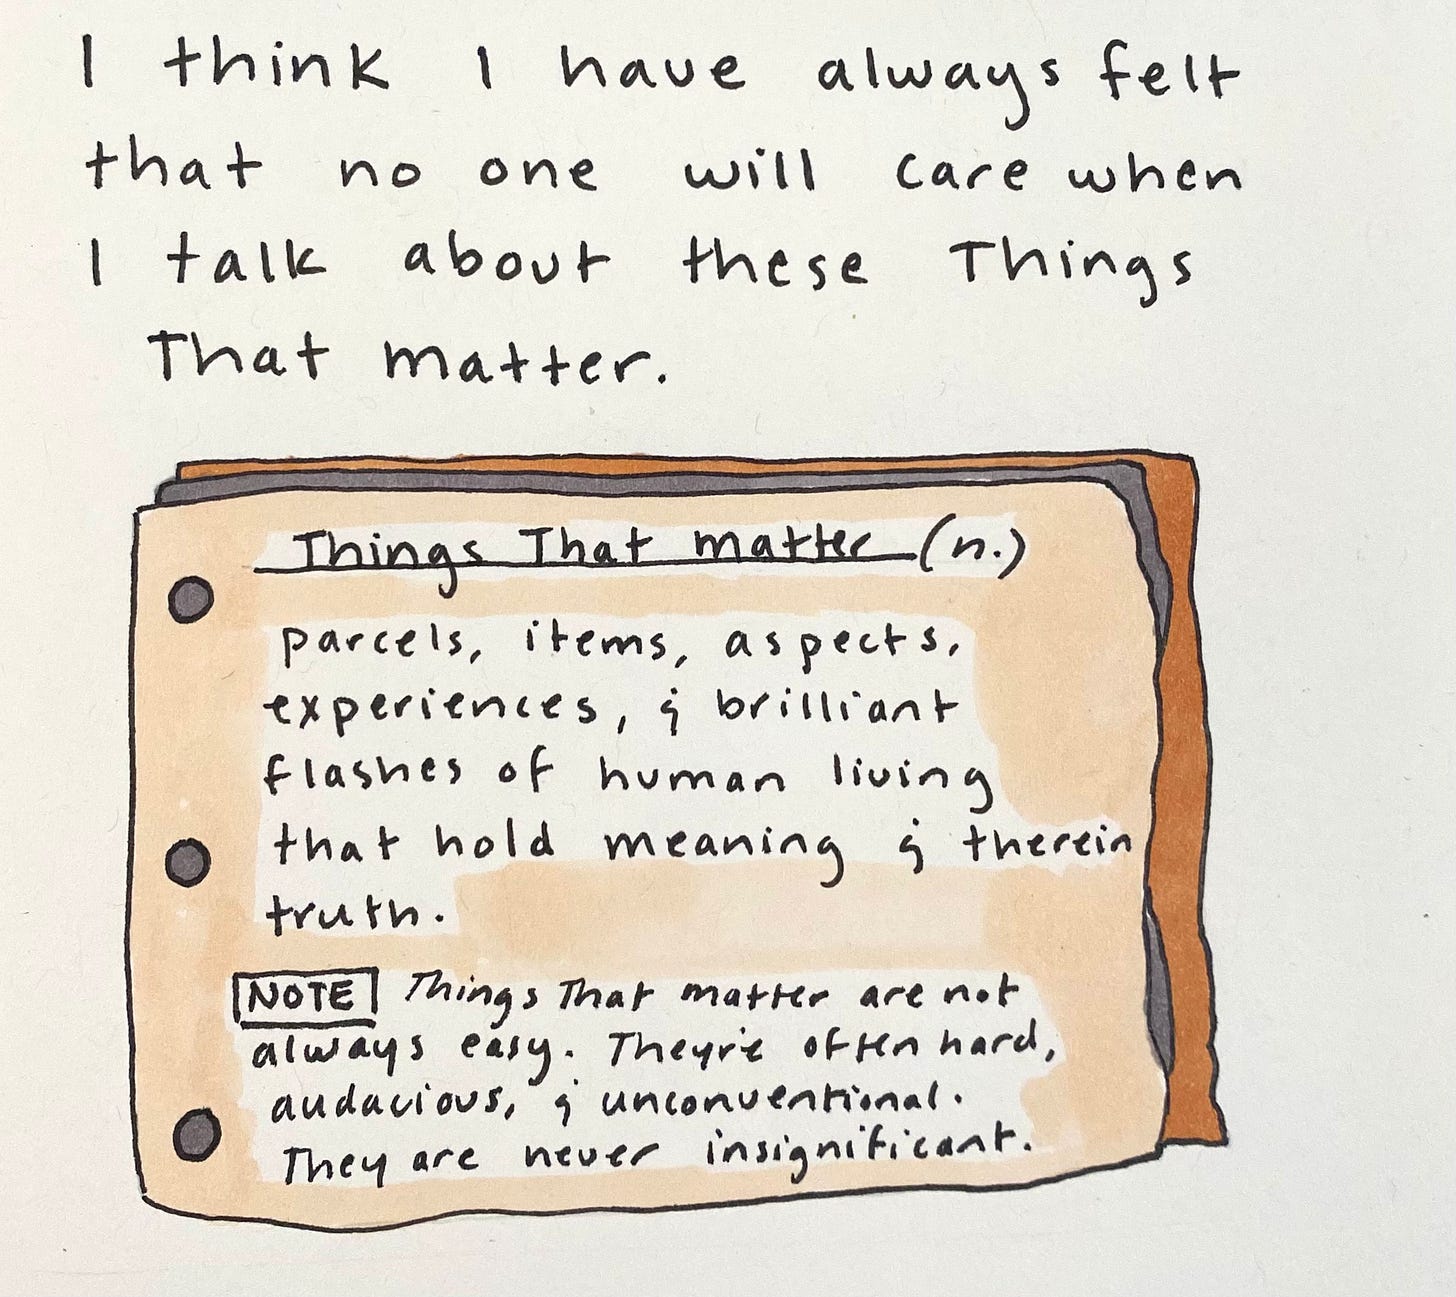 I think I have always felt
that no one will care when
I talk about these Things
That matter.
Things That matter (n.)
parcels, items, aspects,
experiences, & brilliant
flashes of human living
that hold meaning & therein
truth.
NOTE Things That matter are not
always easy. They're often hard,
audacious, & unconventional.
They are never insignificant.